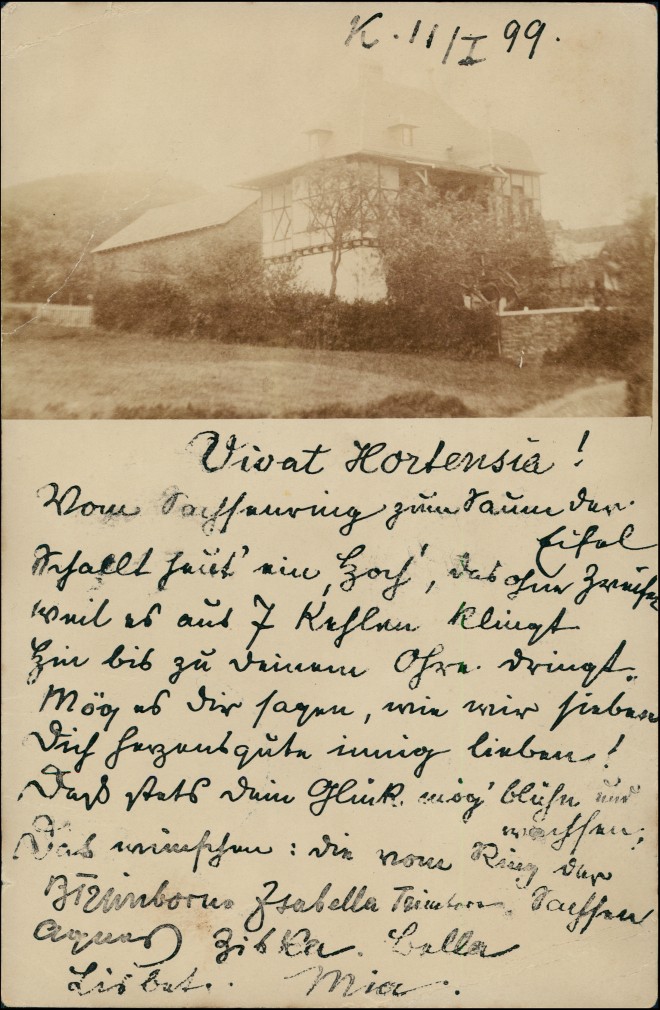 K. 11/I 99.
Vivat Hortensia!
Vom Sachsenring zum Saum der
Eifel
Schallt heut' ein „Hoch", das ohne Zweifel
weil es aus 7 Kehlen klingt
Hin bis zu deinem Ohre dringt.
Mög es dir sagen, wie wir sieben
Dich herzensgute innig lieben!
Daß stets dein Glück mög' blühn und
wachsen,
Das wünschen: die vom Ring der
Sachsen
Isabella
Agnes Ziska. Bella
Lisbet. Mia.